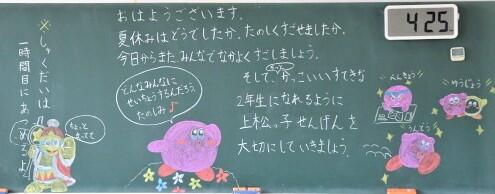 おはようございます。
夏休みはどうでしたか。たのしくすごせましたか。
今日からまた、みんなでなかよくすごしましょう。
そして、もっとかっこいい、すてきな
2年生になれるように
上松っ子せんげんを
大切にしていきましょう。
※しゅくだいは
一時間目にあつめるよ!
ちょっと
まってて
どんなみんなに
せいちょうするんだろう
たのしみ♪
べんきょう
ゆうじょう
うんどう
4 25